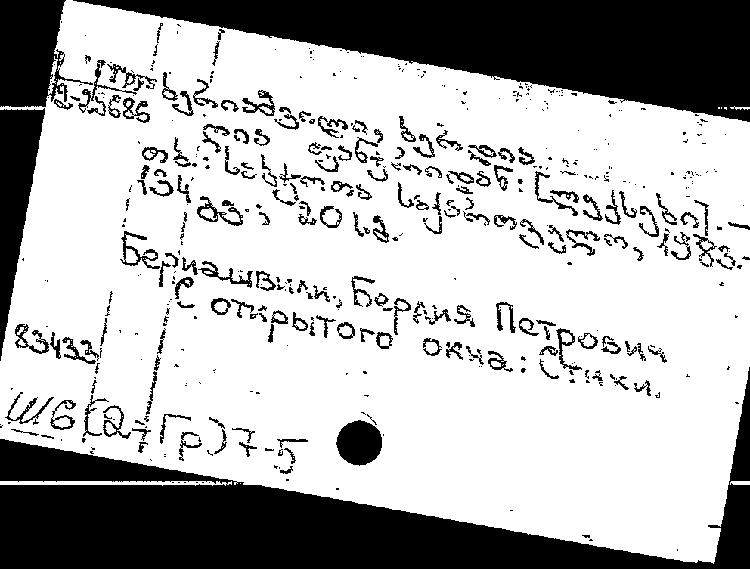 ბერიაშვილი, ბერდია.
ღია ფანჯრიდან: [ლექსები]. —
თბ.: საბჭოთა საქართველო, 1983.-
134 გვ.; 20 სმ.
Бериашвили, Бердия Петрович
С открытого окна: Стихи.
83433
Ш6(2=Гр)7-5